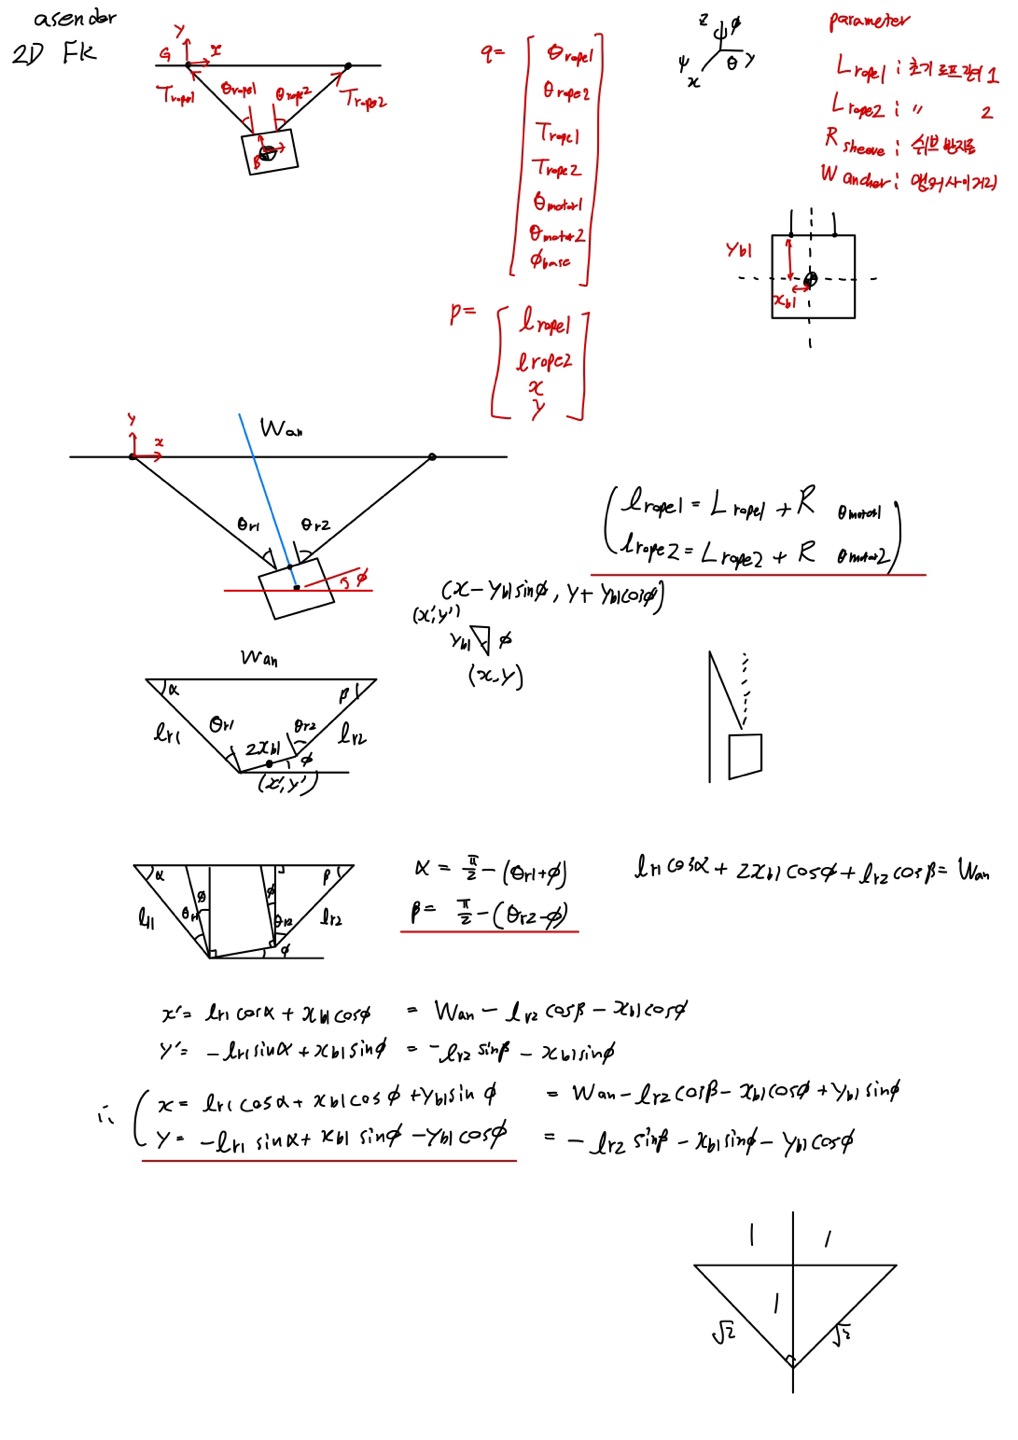 asendor
2D FK
G Y x
Trope1 θrope1 θrope2 Trope2
B
q= [ θrope1
θrope2
Trope1
Trope2
θmotor1
θmotor2
ϕbase ]
p= [ lrope1
lrope2
x
y ]
z ϕ
ψ θ y
x
parameter
Lrope1 ; 초기 로프 길이 1
Lrope2 ; 〃 2
Rsheave ; 쉬브 반지름
Wanchor ; 앵커 사이 거리
yb1
xb1
Y x
Wan
θr1 θr2
ϕ
( lrope1 = Lrope1 + R θmotor1
lrope2 = Lrope2 + R θmotor2 )
(x - yb1 sinϕ, y + yb1 cosϕ)
(x', y')
yb1 ϕ
(x, y)
Wan
α β
lr1 θr1 2xb1 θr2 lr2
ϕ
(x', y')
α ϕ ϕ β
lr1 θr1 θr2 lr2
ϕ
α = π/2 - (θr1+ϕ)
β = π/2 - (θr2-ϕ)
lr1 cosα + 2xb1 cosϕ + lr2 cosβ = Wan
x' = lr1 cosα + xb1 cosϕ = Wan - lr2 cosβ - xb1 cosϕ
y' = -lr1 sinα + xb1 sinϕ = -lr2 sinβ - xb1 sinϕ
∴ ( x = lr1 cosα + xb1 cosϕ + yb1 sinϕ = Wan - lr2 cosβ - xb1 cosϕ + yb1 sinϕ
y = -lr1 sinα + xb1 sinϕ - yb1 cosϕ = -lr2 sinβ - xb1 sinϕ - yb1 cosϕ
1 1
1
√2 √2